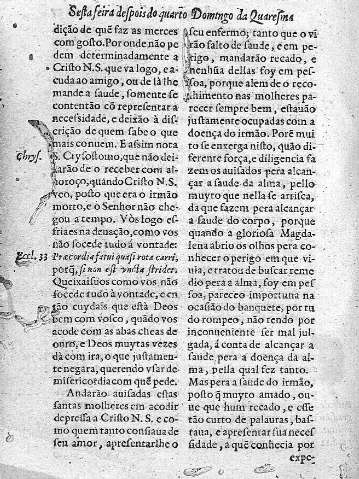 Sesta feira despois do quarto Domingo da Quaresma
dição de que faz as merces
com gosto. Por onde não pe
dem determinadamente a
Cristo N.S. que va logo, e a-
cuda ao amigo, ou de là lhe
mande a saude, somente se
contentão cõ representar a
necessidade, e deixão à dis-
crição de quem sabe o que
mais conuem. E assim nota
Chrys.
S. Crysostomo, que não dei-
xarão de o receber com al-
uoroço, quando Cristo N.S.
veo, posto que era o irmão
morto, e o Senhor não che-
gou a tempo. Vòs logo es-
friaes na deuação, como vos
não socede tudo á vontade:
Eccl. 33
Præcordia fatui quasi rota carri,
porq̃, si non est vncta strider.
Queixaisuos como vos não
socede tudo à vontade, e en-
tão cuydais que està Deos
bem com vosco, quãdo vos
acode com as abas cheas de
ouro, e Deos muytas vezes
dà com ira, o que justamen-
te negàra, querendo vsar de
misericordia com quẽ pede.
Andarão auisadas estas
santas molheres em acodir
depressa a Cristo N.S. e co-
mo quem tanto confiaua de
seu amor, apresentarlhe o
seu enfermo; tanto que o vi
rão falto de saude, e em pe-
rigo, mandarão recado, e
nenhũa dellas foy em pes-
soa, porque alem de o reco-
lhimento nas molheres pa-
recer sempre bem, estauão
justamente ocupadas com a
doença do irmão. Porẽ mui
to se enxerga nisto, quão di
ferente força, e diligencia fa
zem os auisados pera alcan-
çar a saude da alma, pello
muyto que nella se arrisca,
da que fazem pera alcançar
a saude do corpo, porque
quando a gloriosa Magda-
lena abrio os olhos pera co-
nhecer o perigo em que vi-
uia, e tratou de buscar reme
dio pera a alma, foy em pes-
soa, pareceo importuna na
ocasião do banquete, por tu
do rompeo, não rendo por
inconueniente ser mal jul-
gada, á conta de alcançar a
saude pera a doença da al-
ma, pella qual fez tanto.
Mas pera a saude do irmão,
posto q̃ muyto amado, ou-
ue que hum recado, e esse
tão curto de palauras, bas-
taua, e apresentar sua neces
sidade, a quẽ conhecia por
expe-